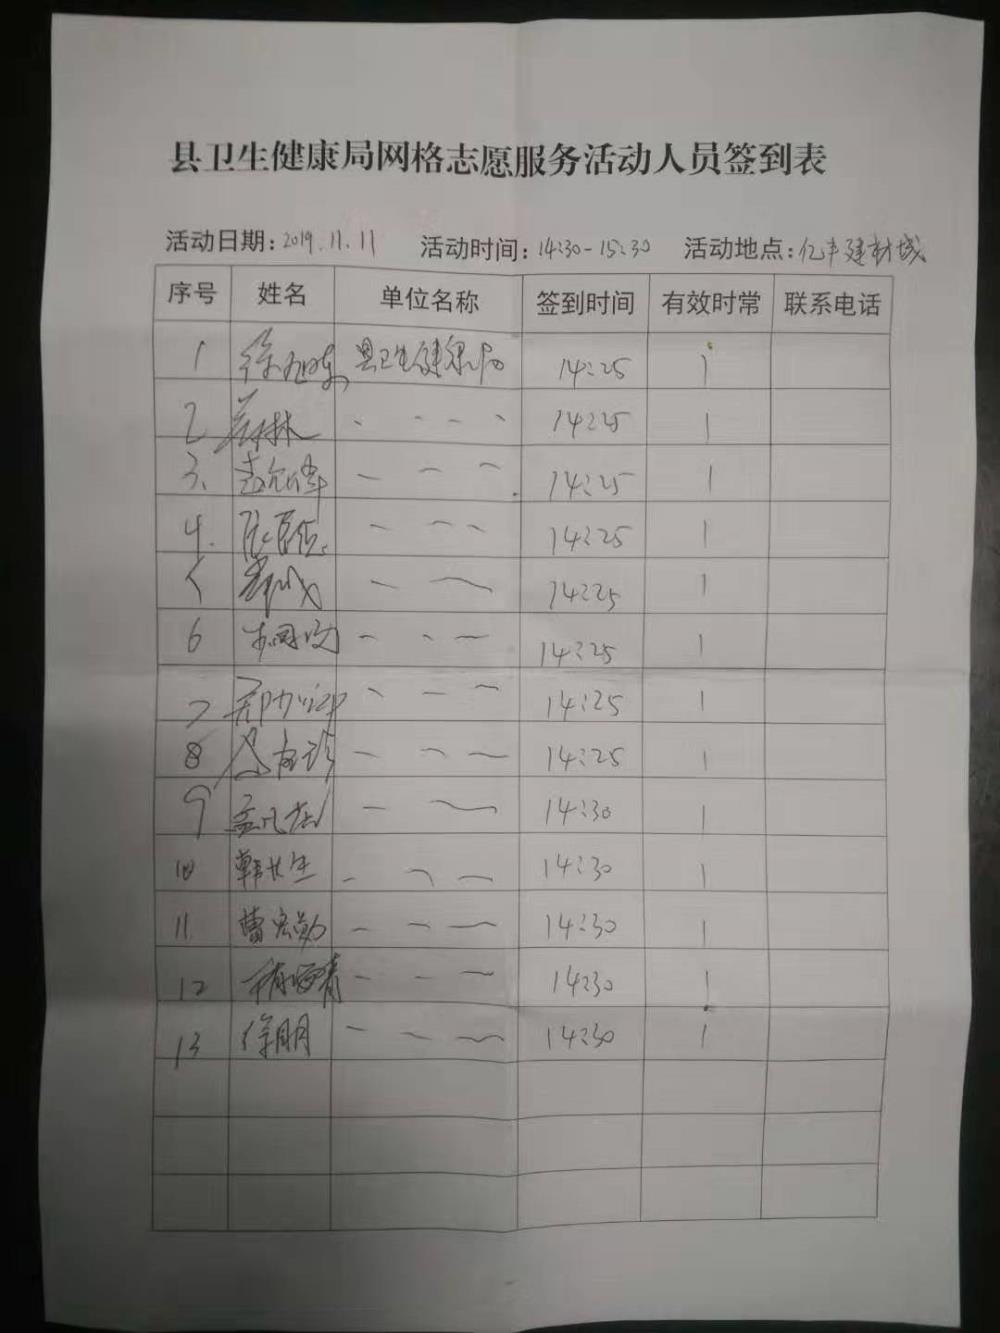 县卫生健康局网格志愿服务活动人员签到表
活动日期：2019.11.11 活动时间：14:30-15:30 活动地点：亿丰建材城
序号 姓名 单位名称 签到时间 有效时常 联系电话
1 徐旭东 县卫生健康局 14:25 1
2 14:25 1
3. 14:25 1
4. 14:25 1
5 14:25 1
6 14:25 1
7 14:25 1
8 14:25 1
9 孟凡杰 14:30 1
10 韩长生 14:30 1
11. 曹宏勋 14:30 1
12 14:30 1
13 徐朋 14:30 1